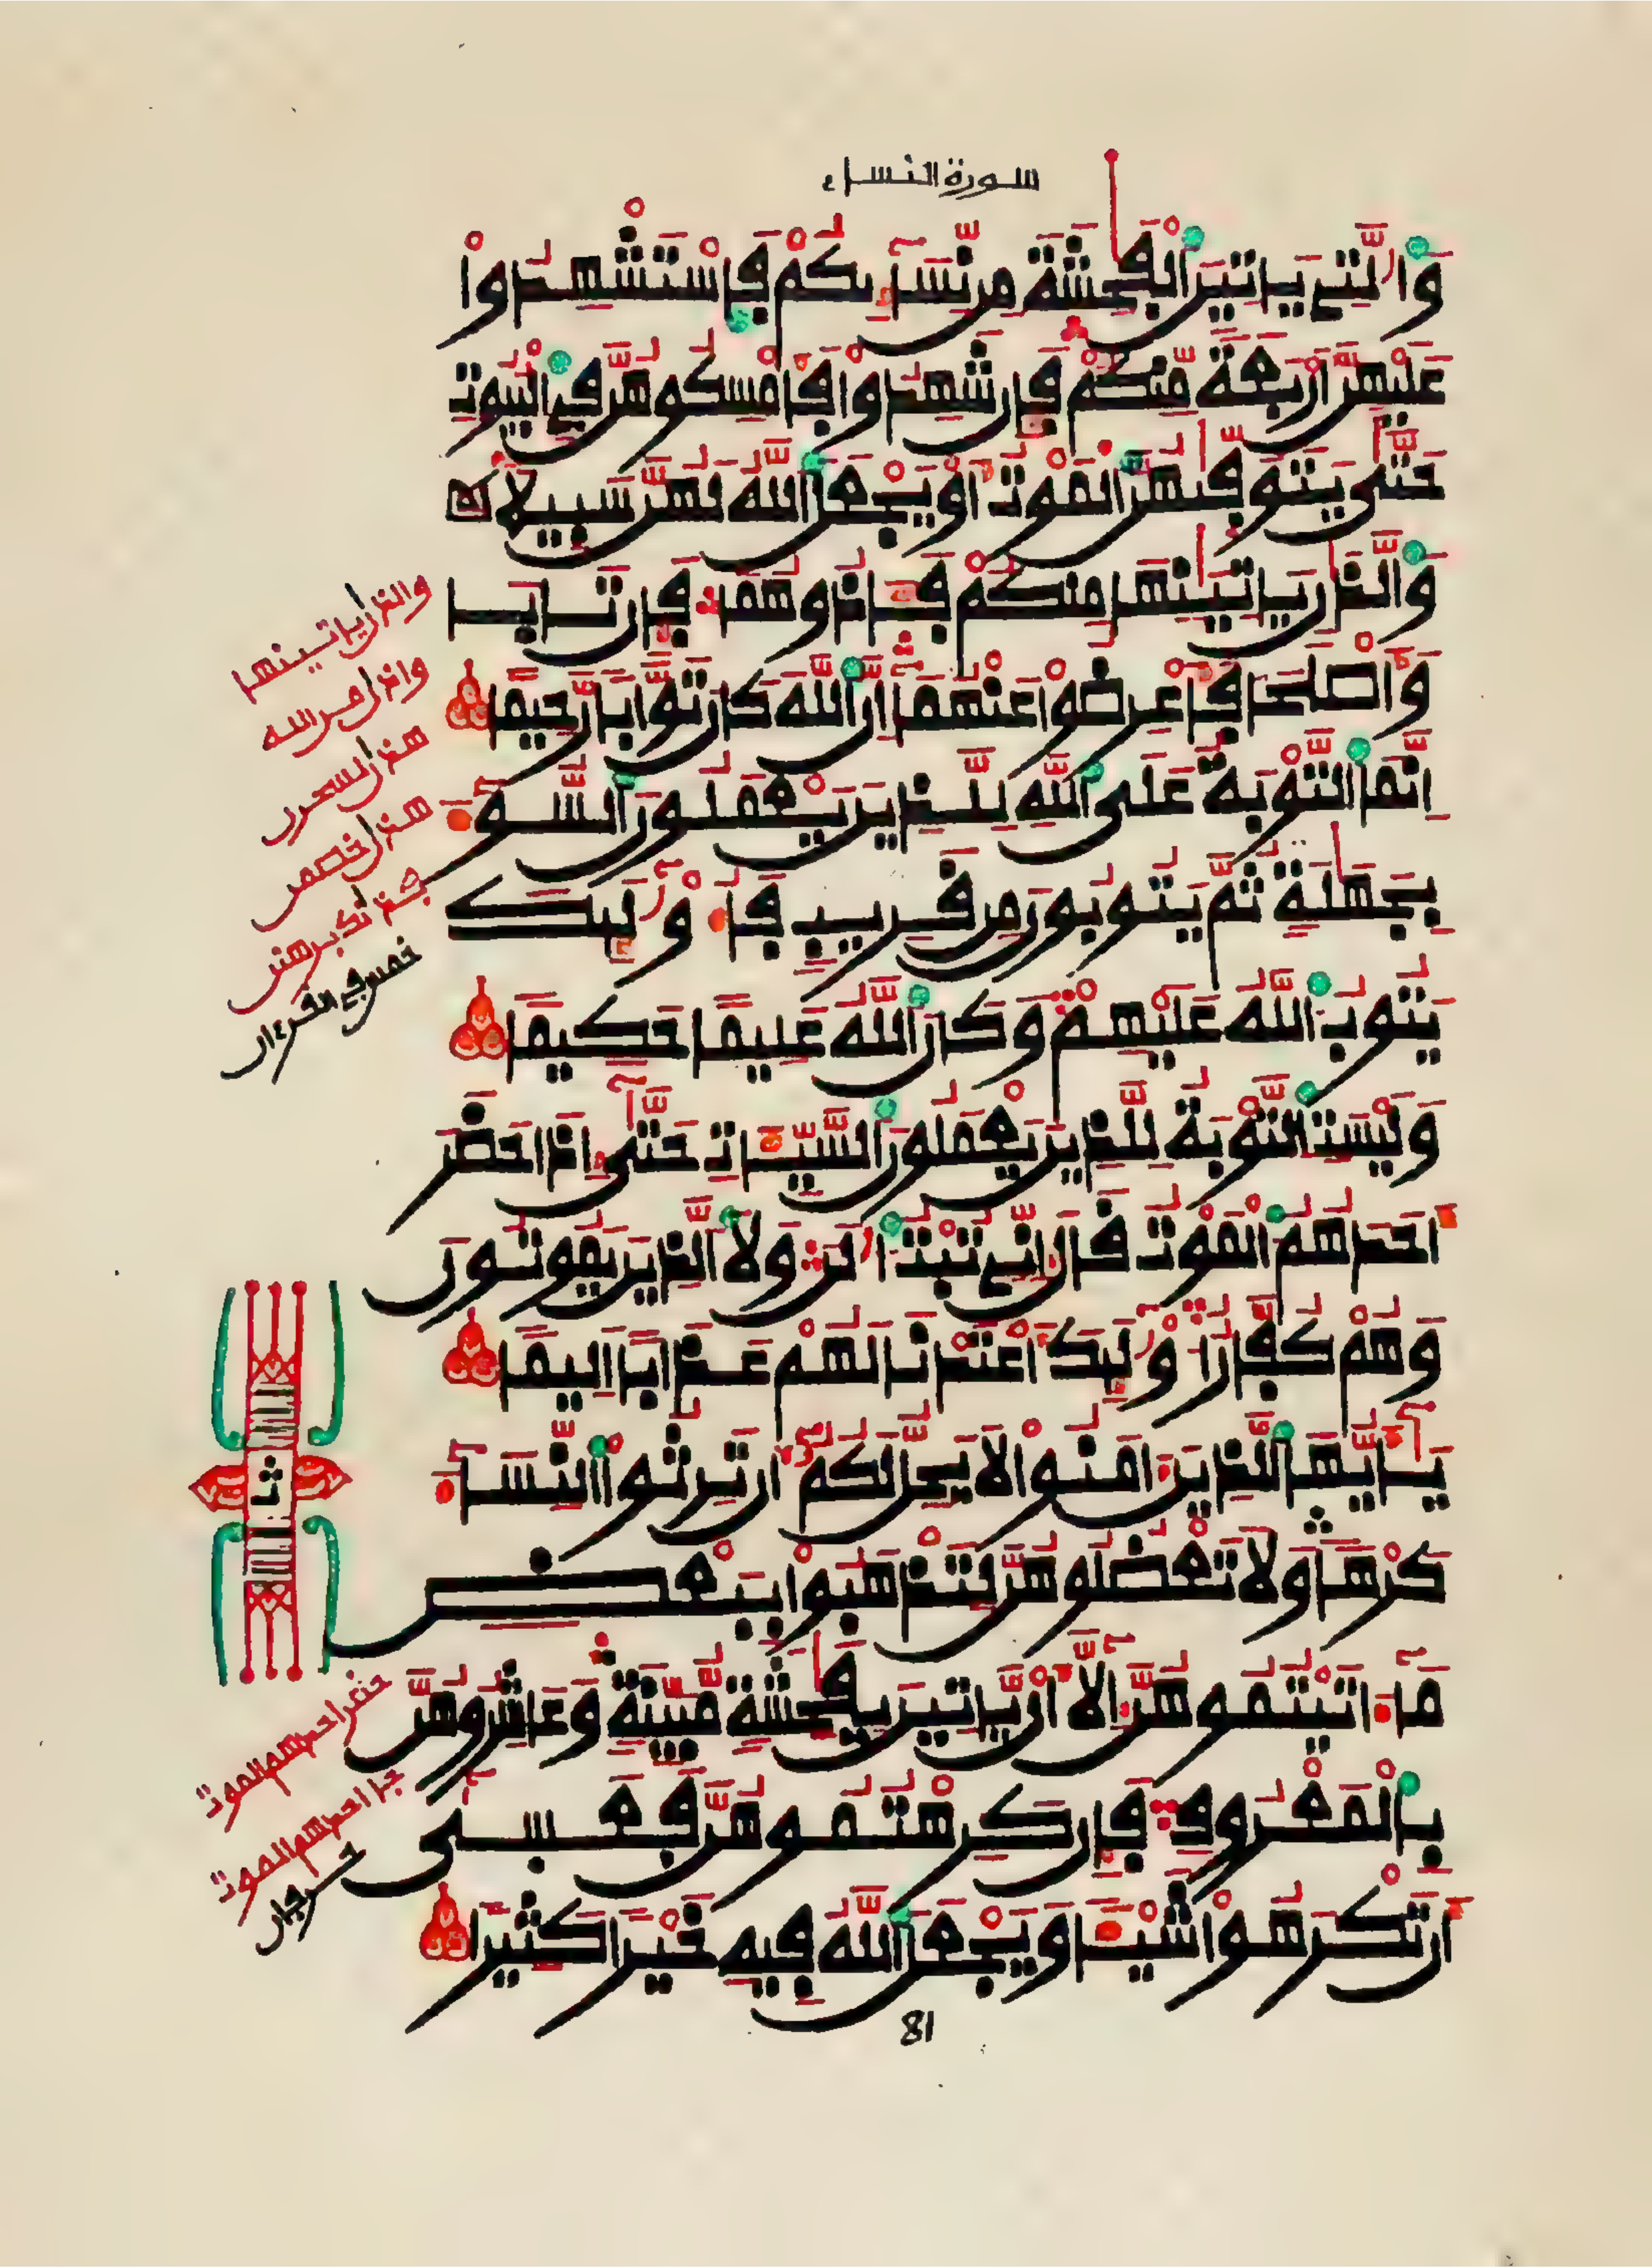 سورة النساء
وَالَّتِے يَاتِينَ اَلْفَٰحِشَةَ مِن نِّسَآئِكُمْ فَاسْتَشْهِدُواْ
عَلَيْهِنَّ أَرْبَعَةً مِّنكُمْ فَإِن شَهِدُواْ فَأَمْسِكُوهُنَّ فِے اِلْبُيُوتِ
حَتَّىٰ يَتَوَفَّيٰهُنَّ اَلْمَوْتُ أَوْ يَجْعَلَ اَللَّهُ لَهُنَّ سَبِيلًا
وَالذَٰنِ يَاتِيَٰنِهَا مِنكُمْ فَـَٔاذُوهُمَا فَإِن تَابَا
وَأَصْلَحَا فَأَعْرِضُواْ عَنْهُمَا إِنَّ اَللَّهَ كَانَ تَوَّابًا رَّحِيمًا
اِنَّمَا اَلتَّوْبَةُ عَلَى اَللَّهِ لِلَّذِينَ يَعْمَلُونَ اَلسُّوٓءَ
بِجَهَٰلَةٍ ثُمَّ يَتُوبُونَ مِن قَرِيبٍ فَأُوْلَٰٓئِكَ
يَتُوبُ اُللَّهُ عَلَيْهِمْ وَكَانَ اَللَّهُ عَلِيمًا حَكِيمًا
وَلَيْسَتِ اِلتَّوْبَةُ لِلَّذِينَ يَعْمَلُونَ اَلسَّيِّـَٔاتِ حَتَّىٰٓ إِذَا حَضَرَ
أَحَدَهُمُ اُلْمَوْتُ قَالَ إِنِّے تُبْتُ اُلَٰنَ وَلَا اَلذِينَ يَمُوتُونَ
وَهُمْ كُفَّارٌ أُوْلَٰٓئِكَ أَعْتَدْنَا لَهُمْ عَذَابًا أَلِيمًا
يَٰٓأَيُّهَا اَلذِينَ ءَامَنُواْ لَا يَحِلُّ لَكُمُۥٓ أَن تَرِثُواْ اُلنِّسَآءَ
كَرْهًا وَلَا تَعْضُلُوهُنَّ لِتَذْهَبُواْ بِبَعْضِ
مَآ ءَاتَيْتُمُوهُنَّ إِلَّآ أَنْ يَّاتِينَ بِفَٰحِشَةٍ مُّبَيَّنَةٍ وَعَاشِرُوهُنَّ
بِالْمَعْرُوفِ فَإِن كَرِهْتُمُوهُنَّ فَعَسَىٰٓ
أَن تَكْرَهُواْ شَيْـًٔا وَيَجْعَلَ اَللَّهُ فِيهِ خَيْرًا كَثِيرًا
والذان ياتينها
هذان خصمن
خمس في القرءان
ثمن
حضر احدهم الموت
جا احدهم الموت
81